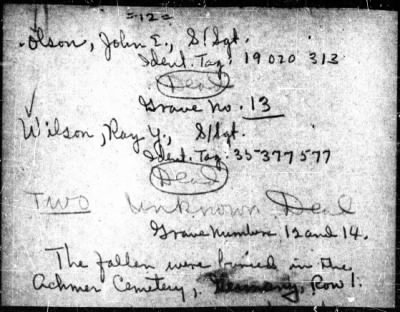 =12=
Olson, John E., S/Sgt.
Ident. Tag: 19 020 313
Dead
Grave No. 13
Wilson, Ray Y., S/Sgt.
Ident. Tag: 35377577
Dead
TWO Unknown Dead
Grave Numbers 12 and 14.
The fallen were buried in the
Achmer Cemetery, Germany, Row 1.